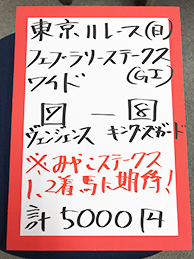 東京11レース(日)
フェブラリーステークス
(GI)
ワイド
7 - 8
ヴェンジェンス キングズガード
※みやこステークス
1、2着馬に期待!
計5000円